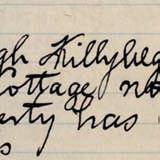 gh Killybeg
Cottage no
erty has
s